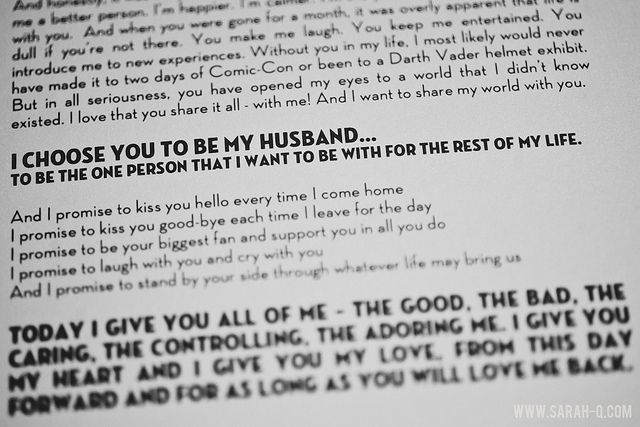 And honestly, it
me a better person. I'm happier. I'm calmer.
with you. And when you were gone for a month, it was overly apparent that life is
dull if you're not there. You make me laugh. You keep me entertained. You
introduce me to new experiences. Without you in my life, I most likely would never
have made it to two days of Comic-Con or been to a Darth Vader helmet exhibit.
But in all seriousness, you have opened my eyes to a world that I didn't know
existed. I love that you share it all - with me! And I want to share my world with you.
I CHOOSE YOU TO BE MY HUSBAND...
TO BE THE ONE PERSON THAT I WANT TO BE WITH FOR THE REST OF MY LIFE.
And I promise to kiss you hello every time I come home
I promise to kiss you good-bye each time I leave for the day
I promise to be your biggest fan and support you in all you do
I promise to laugh with you and cry with you
And I promise to stand by your side through whatever life may bring us
TODAY I GIVE YOU ALL OF ME - THE GOOD, THE BAD, THE
CARING, THE CONTROLLING, THE ADORING ME. I GIVE YOU
MY HEART AND I GIVE YOU MY LOVE. FROM THIS DAY
FORWARD AND FOR AS LONG AS YOU WILL LOVE ME BACK.
WWW.SARAH-Q.COM